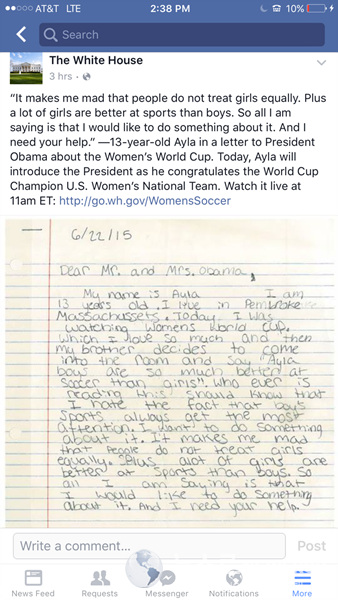 AT&T LTE 2:38 PM 10%
Search
The White House
3 hrs
“It makes me mad that people do not treat girls equally. Plus
a lot of girls are better at sports than boys. So all I am
saying is that I would like to do something about it. And I
need your help.” —13-year-old Ayla in a letter to President
Obama about the Women’s World Cup. Today, Ayla will
introduce the President as he congratulates the World Cup
Champion U.S. Women’s National Team. Watch it live at
11am ET: http://go.wh.gov/WomensSoccer
6/22/15
Dear Mr. and Mrs. Obama,
My name is Ayla I am
13 years old. I live in Pembroke
Massachussets. Today I was
watching womens world cup.
which I love so much and then
my brother decides to come
into the room and say "Ayla
boys are so much better at
soccer than girls". Who ever is
reading this should know that
I hate the fact that boys
sports always get the most
attention. I want to do something
about it. It makes me mad
that People do not treat girls
equally. Plus alot of girls are
better at sports than boys. So
all I am saying is that
I would like to do something
about it. And I need your help.
Write a comment...
Post
News Feed
Requests
Messenger
Notifications
More